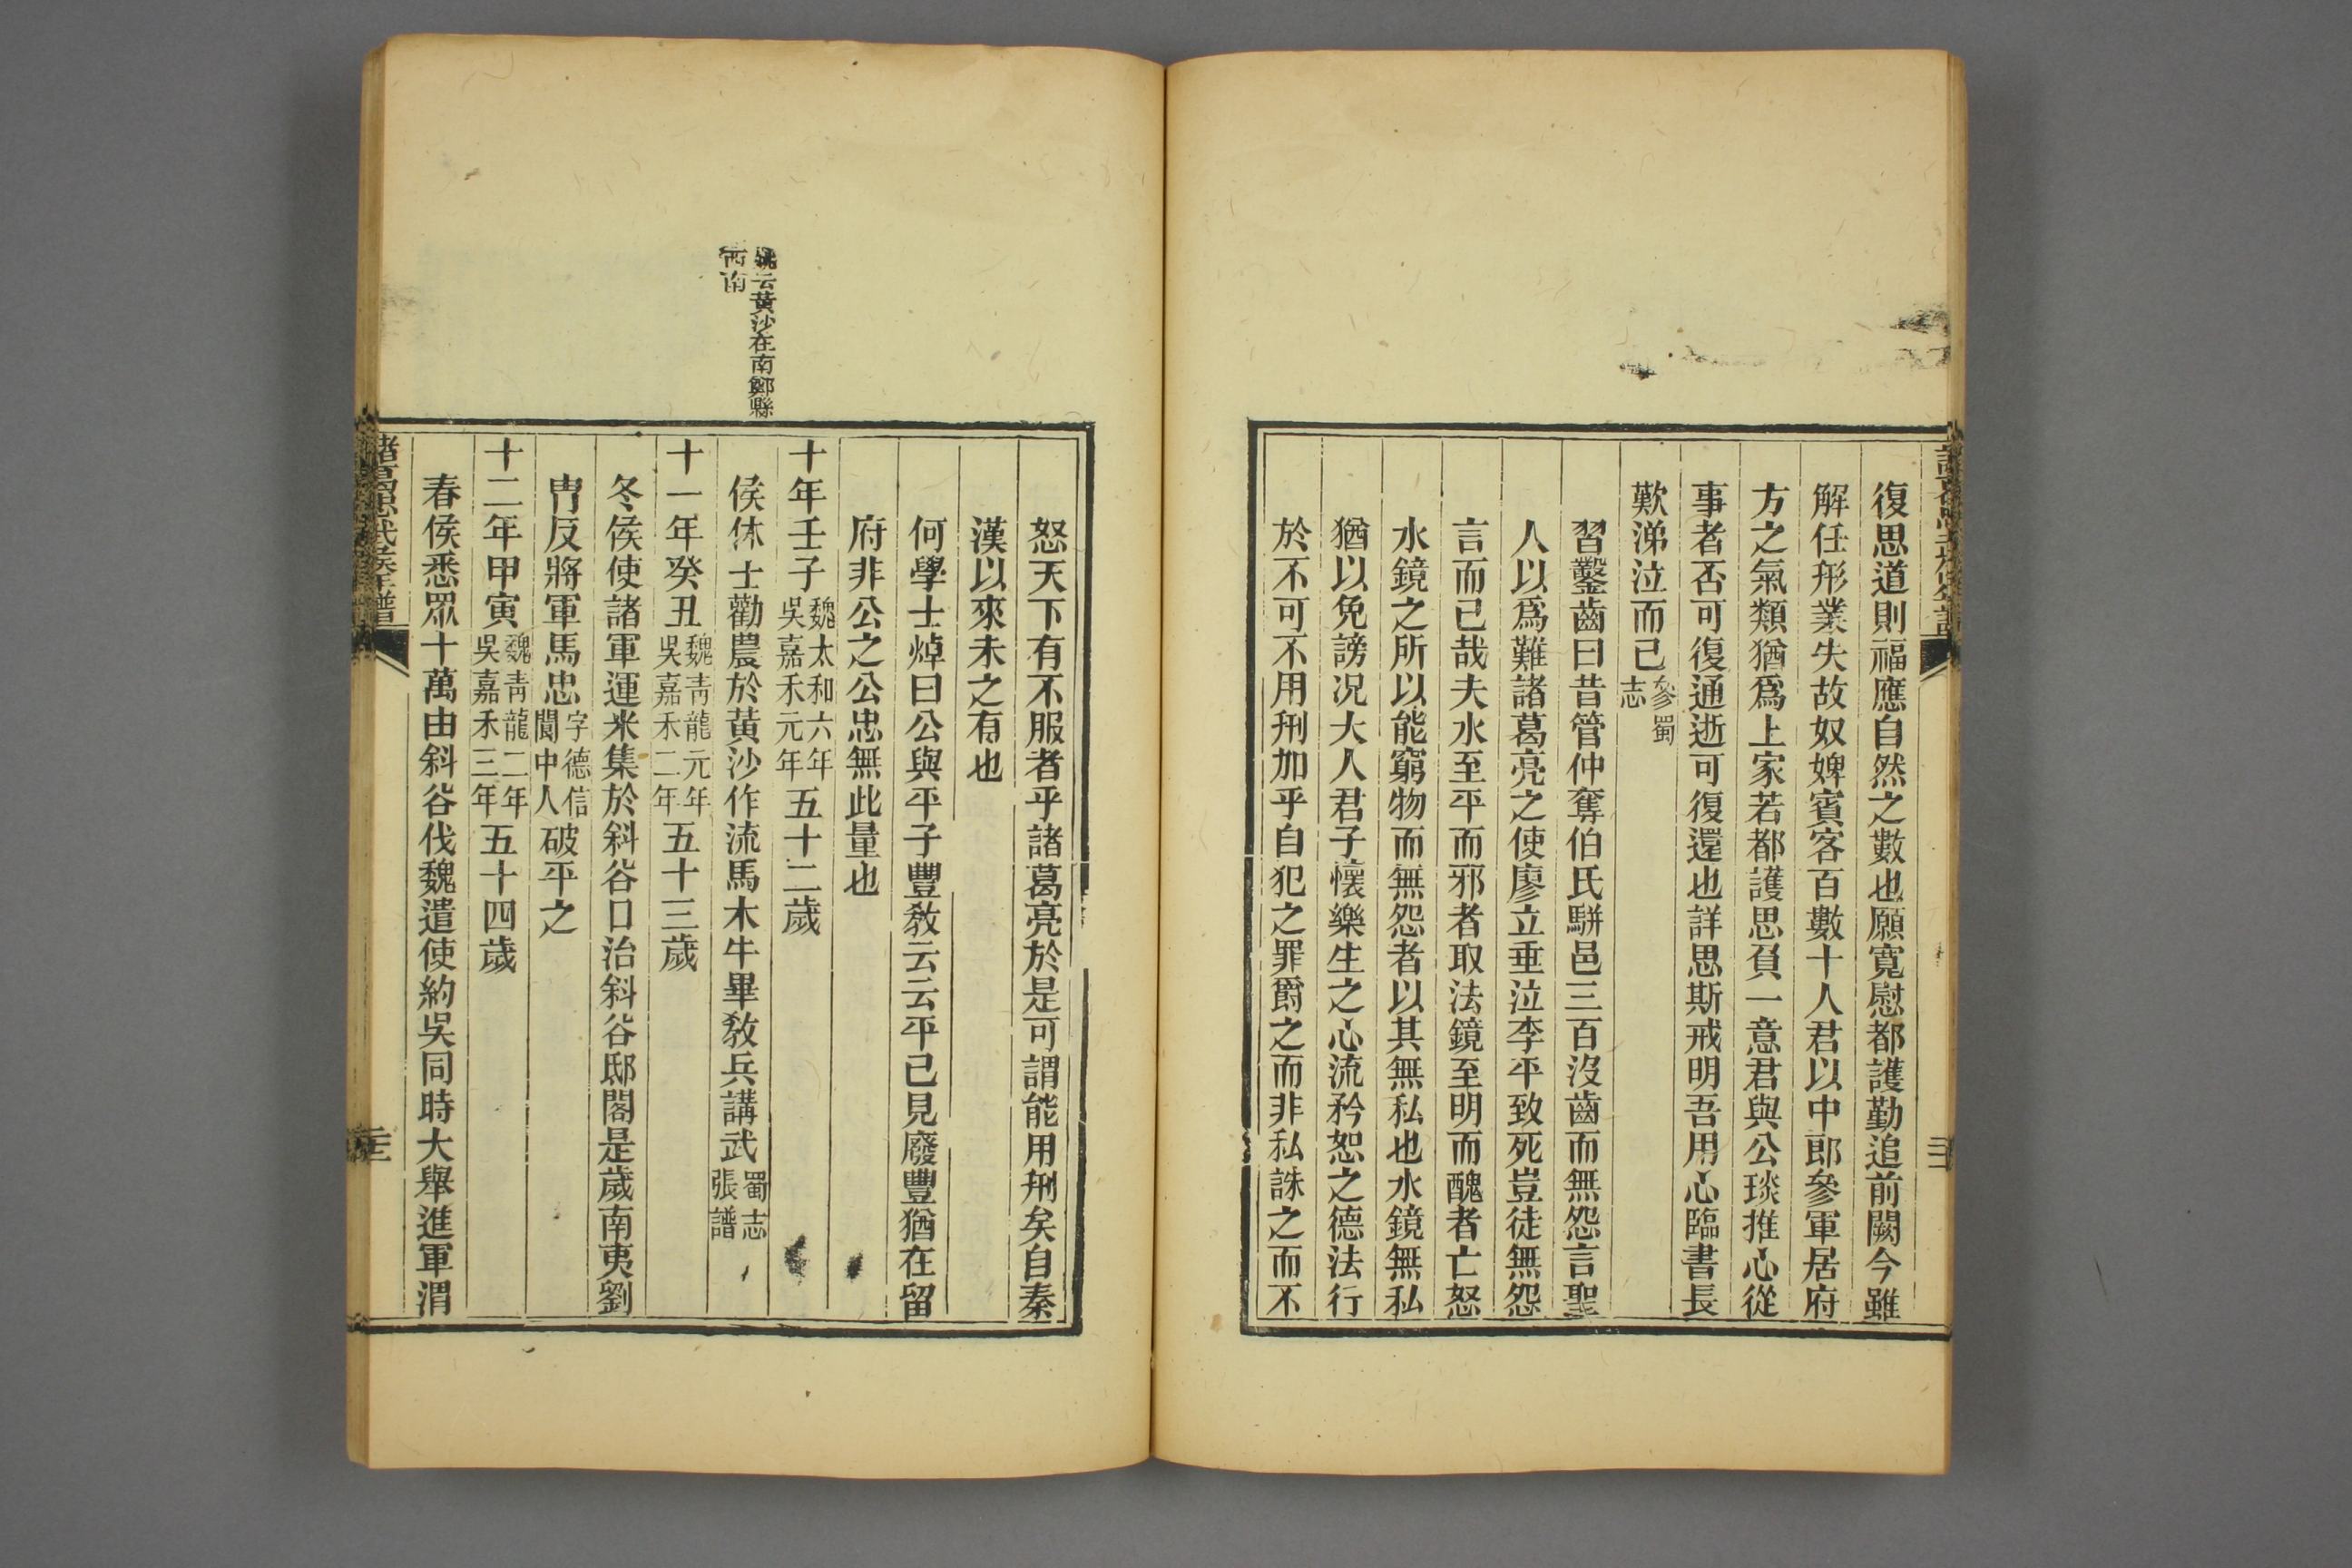 復思道則福應自然之數也願寬慰都護勤追前闕今雖
解任形業失故奴婢賓客百數十人君以中郎參軍居府
方之氣類猶爲上家若都護思負一意君與公琰推心從
事者否可復通逝可復還也詳思斯戒明吾用心臨書長
歎涕泣而已參蜀志
習鑿齒曰昔管仲奪伯氏騈邑三百沒齒而無怨言聖
人以爲難諸葛亮之使廖立垂泣李平致死豈徒無怨
言而已哉夫水至平而邪者取法鏡至明而醜者亡怒
水鏡之所以能窮物而無怨者以其無私也水鏡無私
猶以免謗况大人君子懷樂生之心流矜恕之德法行
於不可不用刑加乎自犯之罪爵之而非私誅之而不
怒天下有不服者乎諸葛亮於是可謂能用刑矣自秦
漢以來未之有也
何學士焯曰公與平子豐敎云云平已見廢豐猶在留
府非公之公忠無此量也
十年壬子魏太和六年吳嘉禾元年五十二歲
侯休士勸農於黃沙作流馬木牛畢敎兵講武蜀志張譜
云黃沙在南鄭縣
西南
十一年癸丑魏靑龍元年吳嘉禾二年五十三歲
冬侯使諸軍運米集於斜谷口治斜谷邸閣是歲南夷劉
冑反將軍馬忠字德信閬中人破平之
十二年甲寅魏靑龍二年吳嘉禾三年五十四歲
春侯悉眾十萬由斜谷伐魏遣使約吳同時大舉進軍渭
諸葛忠武侯年譜